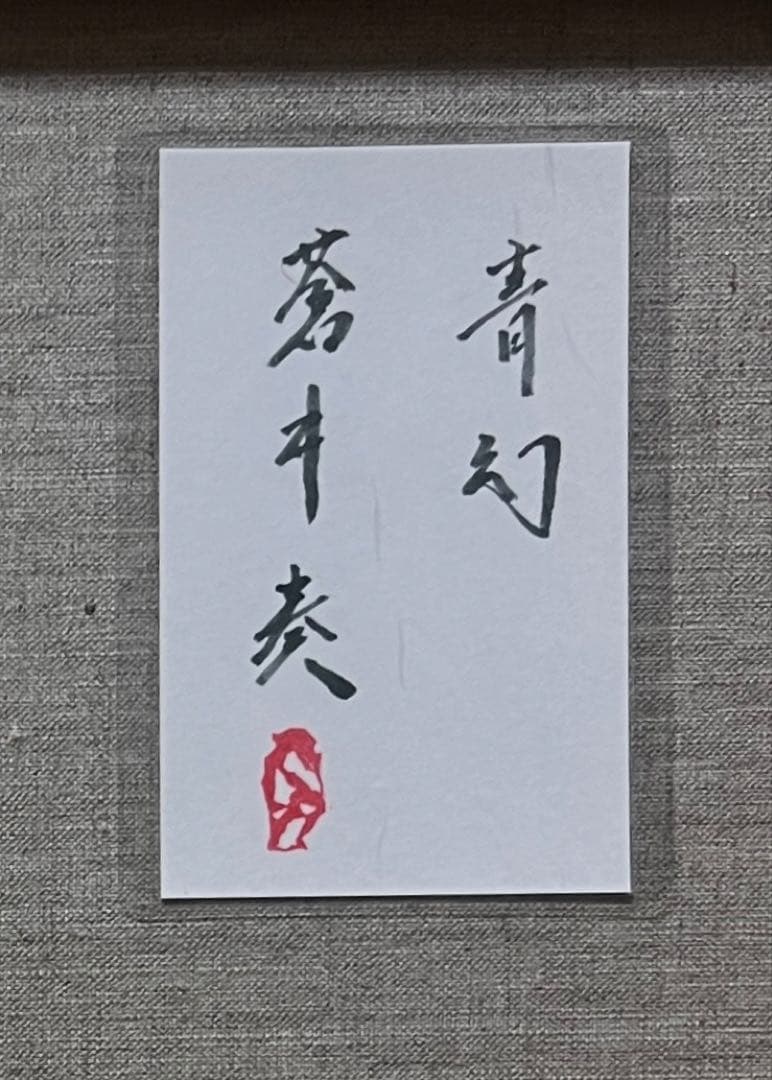 青幻
蒼井奏